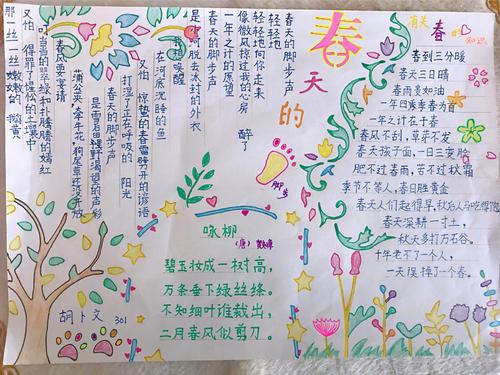 春
天
的
脚步
春天的脚步声
轻轻地
轻轻地向你走来
像微风掠过我的心房
一年之计的愿望
春天的脚步声 醉了
是小河脱去冰封的外衣
我想唤醒
在河底沉睡的鱼
又怕 惊蛰的春雷劈开的谚语
打湿了正在呼吸的 阳光
春天的脚步声
是雪后田野渴望的声彩
蒲公英,牵牛花,狗尾草还没开放
春风要宴请
叽喳的翠绿和扑腾的嫣红
又怕 得罪了惺忪的土壤中
那一丝一丝 嫩嫩的 微黄
有关 春 的知识
春到三分暖
春天三日晴
春雨变如油
一年四季春为首
一年之计在于春
春风不刮,草芽不发
春天孩子面,一日三变脸
肥不过春雨,苦不过秋霜
季节不等人,春日胜黄金
春天人们起得早,秋后人马吃得饱
春天深耕一寸土,
秋天多打万石谷。
十年老不了一个人,
一天误掉了一个春。
咏柳
(唐)贺知章
碧玉妆成一树高,
万条垂下绿丝绦。
不知细叶谁裁出,
二月春风似剪刀。
胡卜文 301